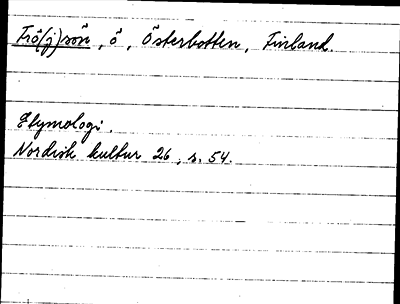 Frö(j)sön, ö, Österbotten, Finland.
Etymologi.
Nordisk kultur 26, s. 54.